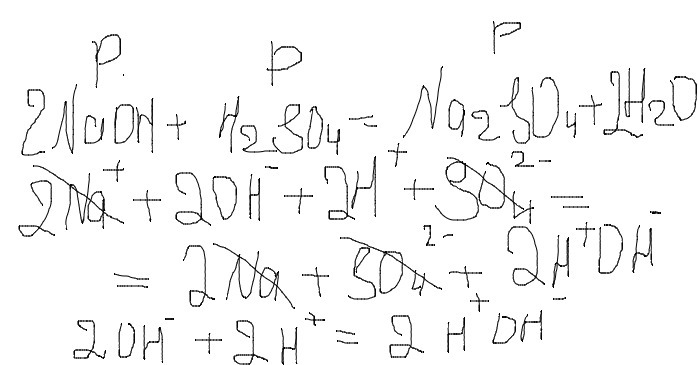 р. р р
2NaOH + H₂SO₄ = Na₂SO₄ + 2H₂O
2Na⁺ + 2OH⁻ + 2H⁺ + SO₄²⁻ =
= 2Na + SO₄²⁻ + 2H⁺OH⁻
2OH⁻ + 2H⁺ = 2H⁺OH⁻